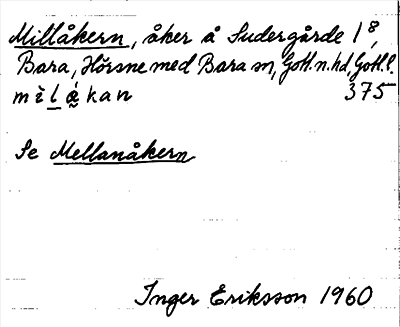 Millåkern, åker å Sudergårde 1⁸,
Bara, Hörsne med Bara sn, Gotl. n. hd, Gotl. l.
mìl̲ǽ̰kan 375
Se Mellanåkern
Inger Eriksson 1960